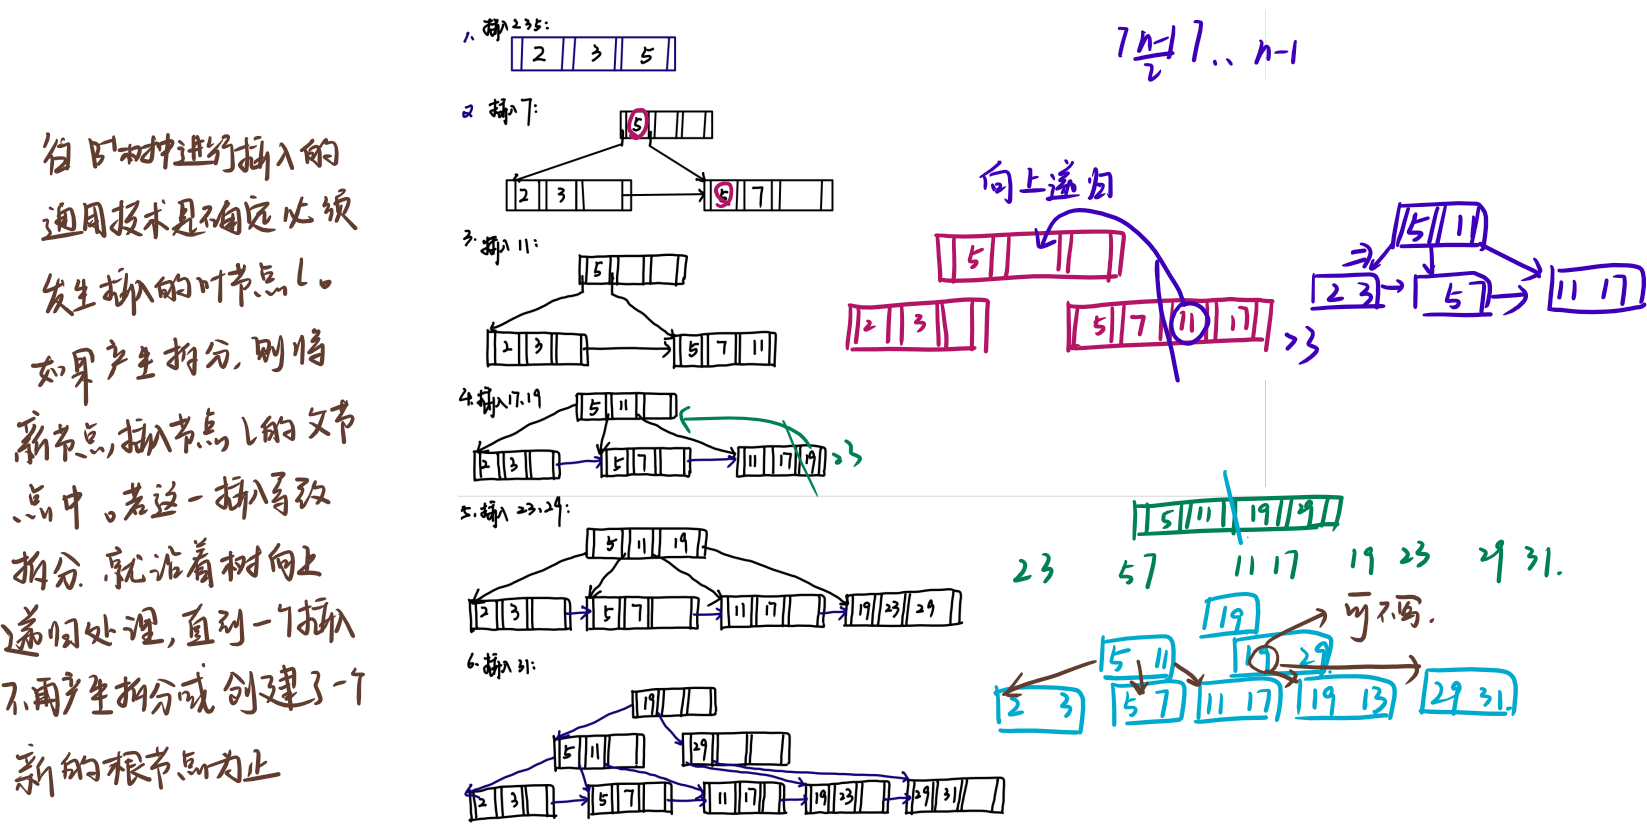 往B⁺树中进行插入的
通用技术是确定必须
发生插入的叶节点L。
如果产生拆分,则将
新节点,插入节点L的父节
点中。若这一插入导致
拆分.就沿着树向上
递归处理,直到一个插入
不再产生拆分或创建了一个
新的根节点为止
1. 插入2 3 5:
2 3 5
2 插入7:
5
2 3
5 7
3. 插入11:
5
2 3
5 7 11
4.插入17.19
5 11
2 3
5 7
11 17 19
>3
5.插入 23.29:
5 11 19
2 3
5 7
11 17
19 23 29
6.插入31:
19
5 11
29
2 3
5 7
11 17
19 23
29 31
⌈n-1/2⌉.. n-1
向上递归
5
2 3
5 7 11 17
>3
⇒
5 11
2 3
5 7
11 17
5 11 19 29
2 3 5 7 11 17 19 23 29 31.
19
可不写.
5 11
19 29
2 3
5 7
11 17
19 13
29 31.